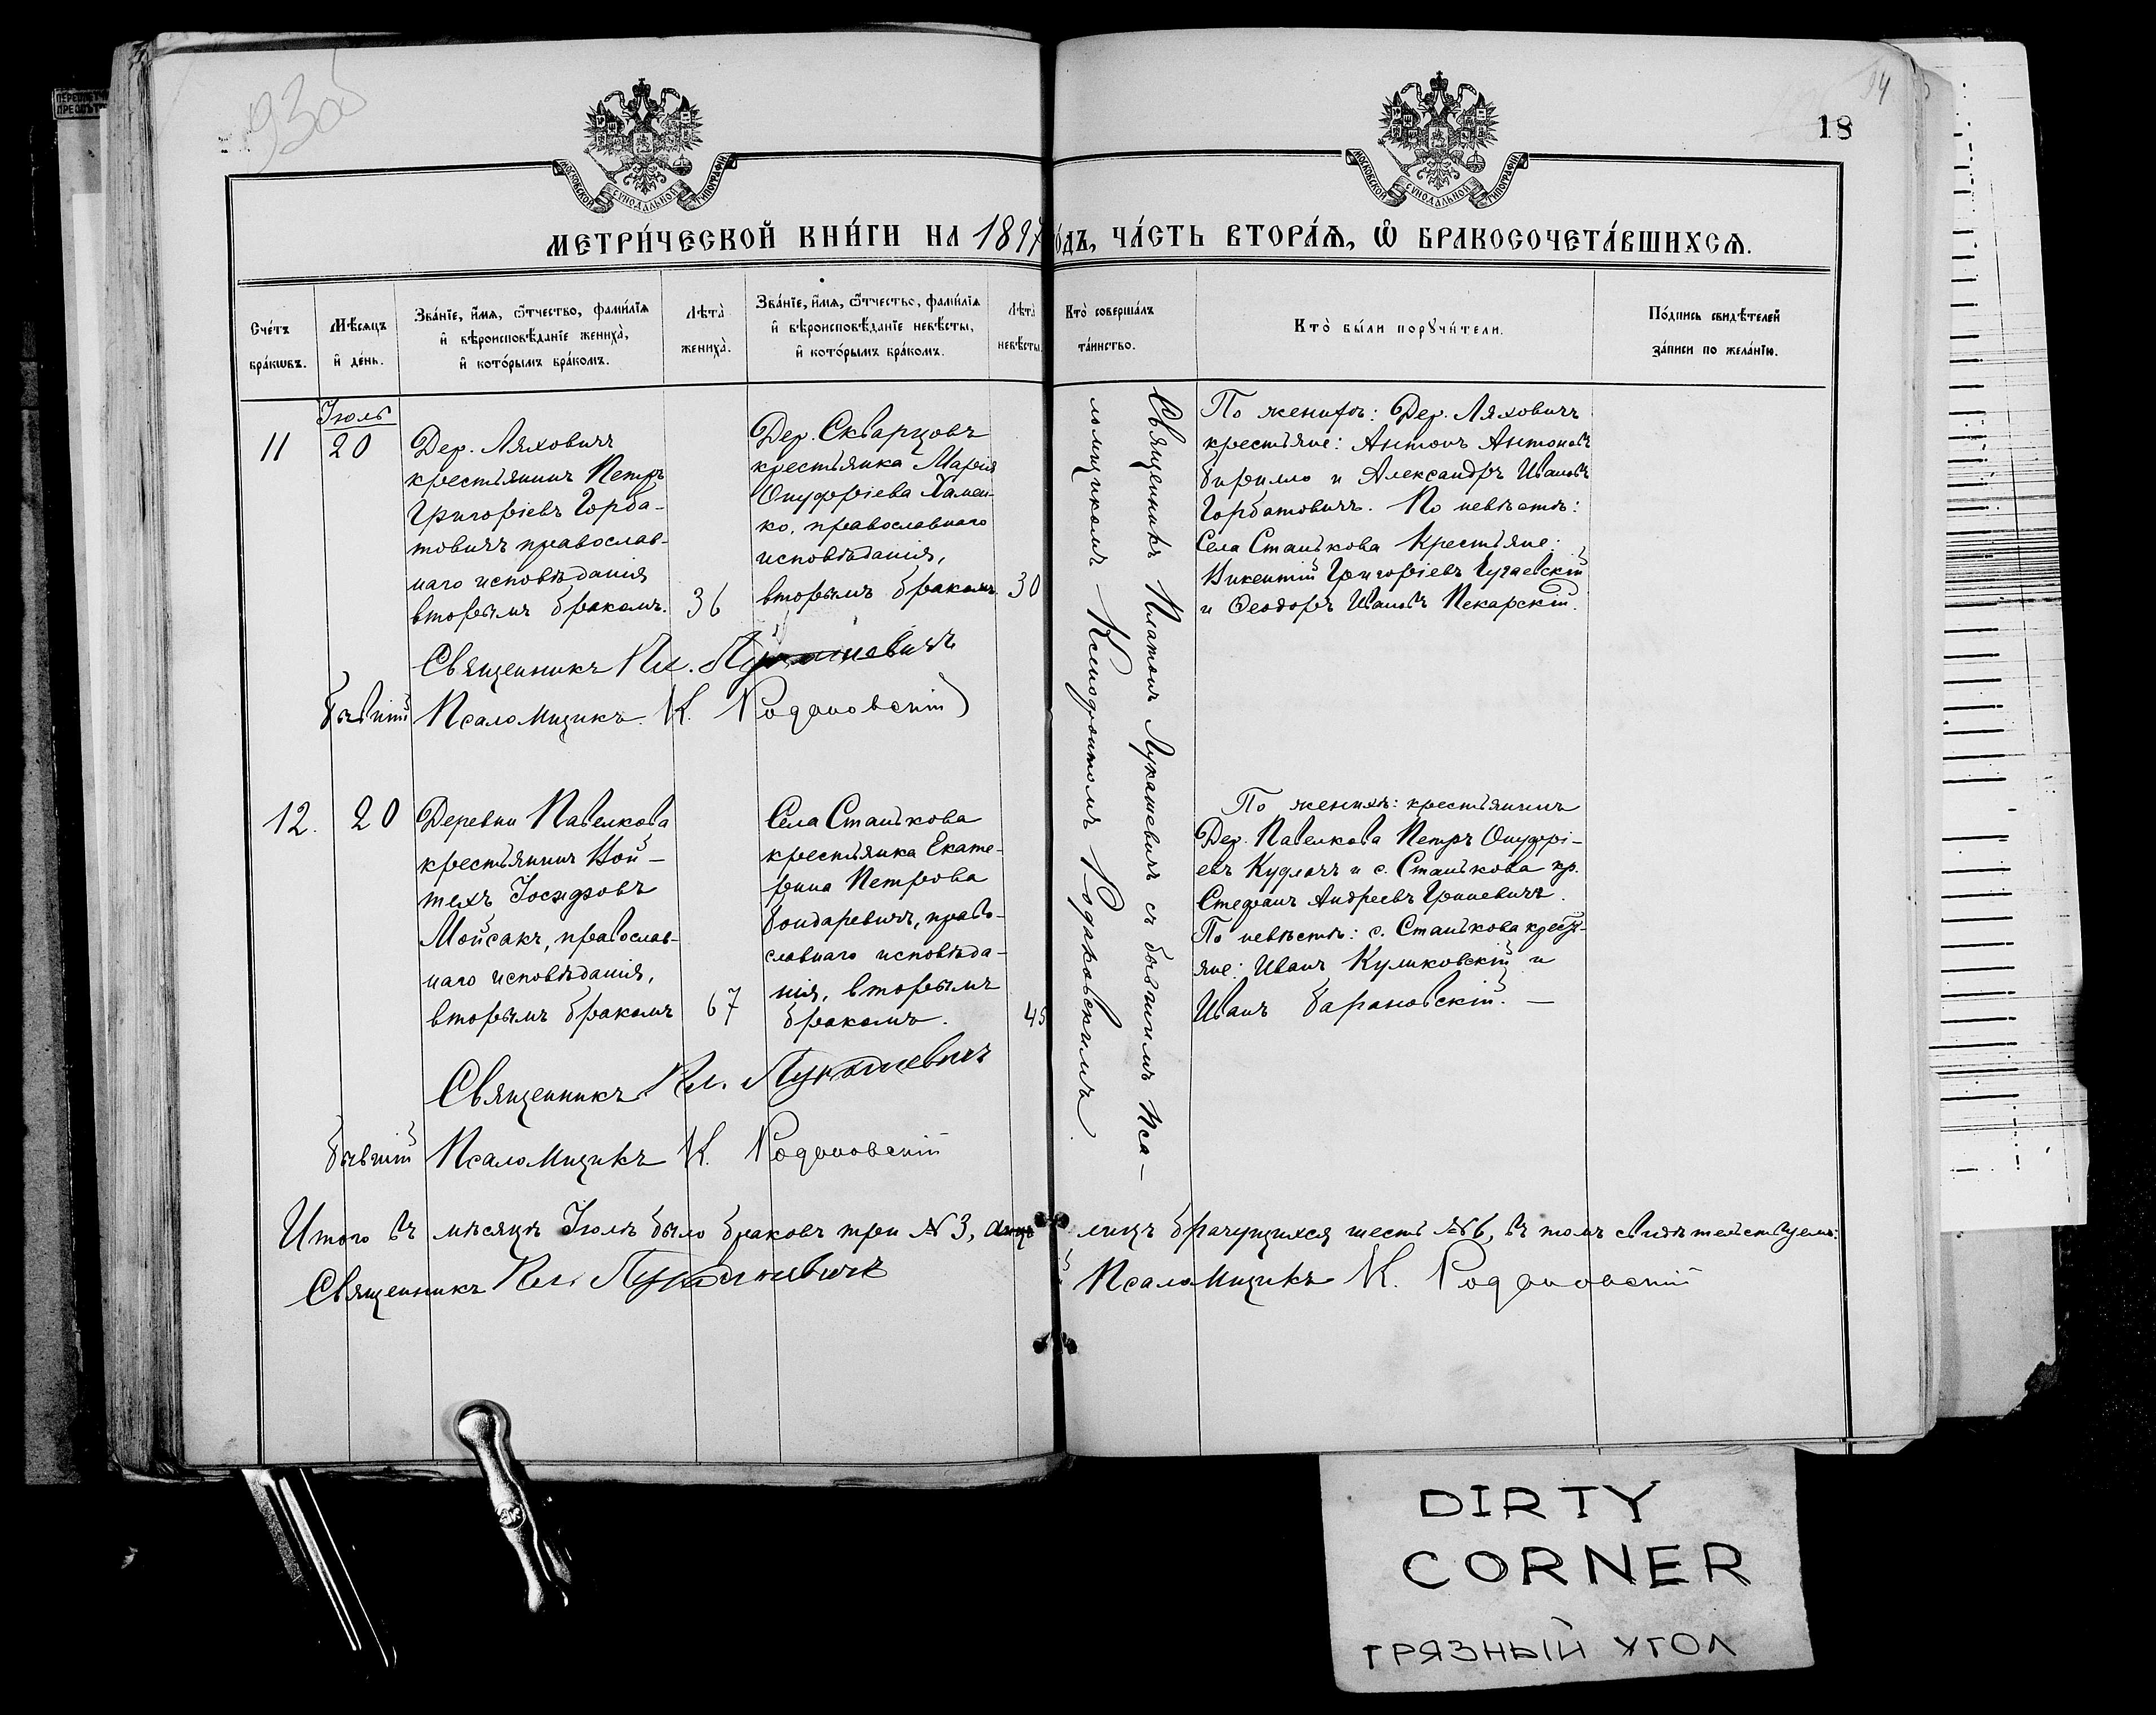 93об
94
18
МОСКОВСКОЙ СѴНОДАЛЬНОЙ ТИПОГРАФІИ
МОСКОВСКОЙ СѴНОДАЛЬНОЙ ТИПОГРАФІИ
МЕТРИ́ЧЕСКОЙ КНИ́ГИ НА 1897 ГО́ДЪ, ЧА́СТЬ ВТОРА́Ѧ, Ѽ БРАКОСОЧЕТА́ВШИХСѦ.
Сче́тъ бра́кѡвъ.
Мѣ́сѧцъ и҆ де́нь.
Зва́нїе, и҆́мѧ, ѻ҆́тчество, фами́лїѧ и҆ вѣроисповѣ́данїе жениха̀, и҆ кото́рымъ бра́комъ.
Лѣ́та жениха̀.
Зва́нїе, и҆́мѧ, ѻ҆́тчество, фами́лїѧ и҆ вѣроисповѣ́данїе невѣ́сты, и҆ кото́рымъ бра́комъ.
Лѣ́та невѣ́сты.
Кто̀ соверша́лъ та́инство.
Кто̀ бы́ли порꙋчи́тели.
По́дпись свидѣ́телей за́писи по жела́нїю.
Іюль
11
20
Дер. Ляховичъ
крестьянинъ Петръ
Григоріевъ Горба-
товичъ православ-
наго исповѣданія
вторымъ бракомъ.
36
Дер. Скварцовъ
крестьянка Марія
Онуфріева Хамен-
ко, православнаго
исповѣданія,
вторымъ бракомъ.
30
Священникъ Платонъ Лукашевичъ съ бывшимъ пса-
ломщикомъ Ксенофонтомъ Родаковскимъ.
По женихѣ: Дер. Ляховичъ
крестьяне: Антонъ Антоновъ
Бирилло и Александръ Ивановъ
Горбатовичъ. По невѣстѣ:
Села Станькова Крестьяне:
Викентій Григоріевъ Чугаевскій
и Ѳеодоръ Ивановъ Пекарскій.
Священникъ Пл. Лукашевичъ
бывшій Псаломщикъ К. Родаковскій
12.
20
Деревни Павелкова
крестьянинъ Вой-
техъ Іосифовъ
Мойсакъ, православ-
наго исповѣданія,
вторымъ бракомъ
67
Села Станькова
крестьянка Екате-
рина Петрова
Бондаревичъ, право-
славнаго исповѣда-
нія, вторымъ
бракомъ.
45
По женихѣ: крестьянинъ
Дер. Павелкова Петръ Онуфрі-
евъ Кудлачъ и с. Станькова кр.
Стефанъ Андреевъ Гриневичъ.
По невѣстѣ: с. Станькова кресть-
яне: Иванъ Куликовскій и
Иванъ Барановскій. —
Священникъ Пл. Лукашевичъ
бывшій Псаломщикъ К. Родаковскій
Итого въ мѣсяцѣ Іюлѣ было браковъ три № 3, лицъ брачущихся шесть № 6, въ томъ свидѣтельствуемъ:
Священникъ Пл. Лукашевичъ Псаломщикъ К. Родаковскій
DIRTY
CORNER
ГРЯЗНЫЙ УГОЛ